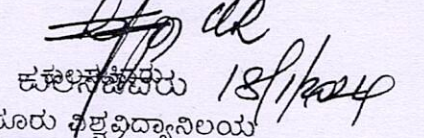 ಕುಲಸಚಿವರು 18/1/2024
ವಿಶ್ವವಿದ್ಯಾನಿಲಯ